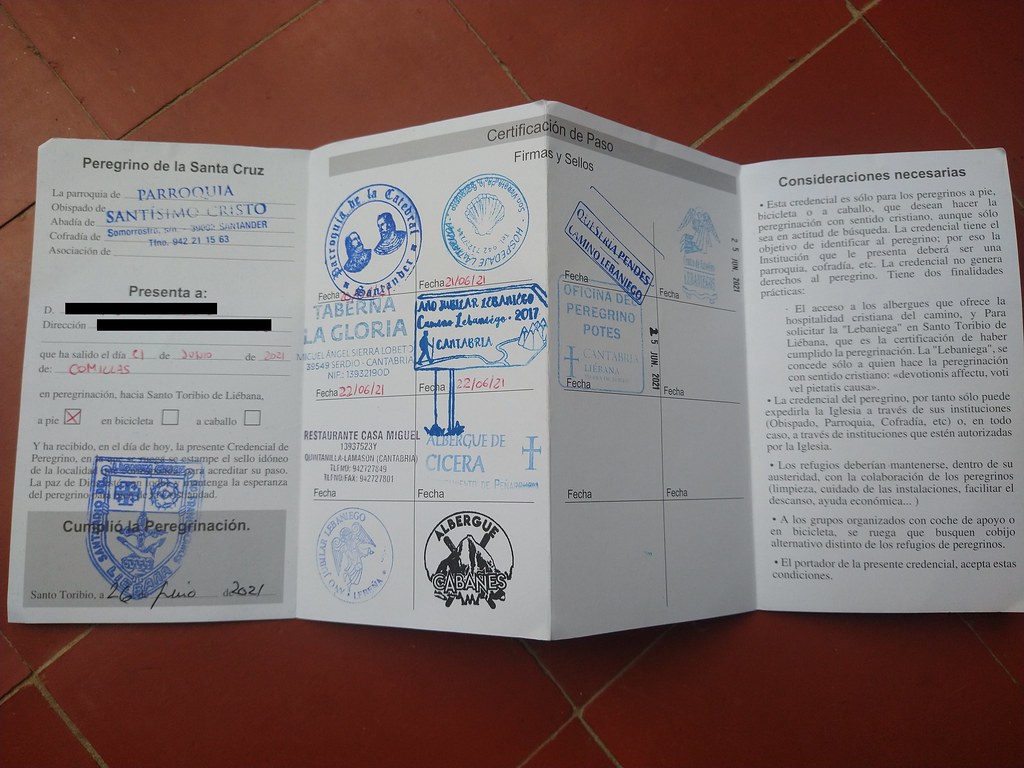 Peregrino de la Santa Cruz
La parroquia de PARROQUIA
Obispado de
Abadía de SANTÍSIMO CRISTO
Cofradía de Somorrostro, s/n. - 39002 SANTANDER
Tfno. 942 21 15 63
Asociación de
Presenta a:
D.
Dirección
que ha salido el día 21 de JUNIO de 2021
de: COMILLAS
en peregrinación, hacia Santo Toribio de Liébana,
a pie X en bicicleta a caballo
Y ha recibido, en el día de hoy, la presente Credencial de
Peregrino, en se estampe el sello idóneo
de la localida para acreditar su paso.
La paz de Di mantenga la esperanza
del peregrino
Cumplió la Peregrinación.
LIÉBANA
Santo Toribio, a 26 de junio de 2021
Certificación de Paso
Firmas y Sellos
Parroquia de la Catedral
Santander
Fecha
HOSPEDAJE
Fecha 21/06/21
TABERNA
LA GLORIA
MIGUEL ÁNGEL SIERRA LOBETO
39549 SERDIO - CANTABRIA
NIF.: 13932190D
Fecha 22/06/21
AÑO JUBILAR LEBANIEGO
Camino Lebaniego · 2017
CANTABRIA
Fecha 22/06/21
RESTAURANTE CASA MIGUEL
13937523Y
QUINTANILLA-LAMASÓN (CANTABRIA)
TLFNO: 942727849
TLFNO/FAX: 942727801
Fecha
ALBERGUE DE
CICERA
Fecha
AÑO JUBILAR LEBANIEGO
LEBEÑA
ALBERGUE
CABAÑES
QUESERIA PENDES
CAMINO LEBANIEGO
Fecha
25 JUN. 2021
Fecha
OFICINA DEL
PEREGRINO
POTES
CANTABRIA
LIÉBANA
JUN. 2021
Fecha
Fecha
Fecha
Fecha
Consideraciones necesarias
• Esta credencial es sólo para los peregrinos a pie,
bicicleta o a caballo, que desean hacer la
peregrinación con sentido cristiano, aunque sólo
sea en actitud de búsqueda. La credencial tiene el
objetivo de identificar al peregrino; por eso la
Institución que le presenta deberá ser una
parroquia, cofradía, etc. La credencial no genera
derechos al peregrino. Tiene dos finalidades
prácticas:
· El acceso a los albergues que ofrece la
hospitalidad cristiana del camino, y Para
solicitar la "Lebaniega" en Santo Toribio de
Liébana, que es la certificación de haber
cumplido la peregrinación. La "Lebaniega", se
concede sólo a quien hace la peregrinación
con sentido cristiano: «devotionis affectu, voti
vel pietatis causa».
• La credencial del peregrino, por tanto sólo puede
expedirla la Iglesia a través de sus instituciones
(Obispado, Parroquia, Cofradía, etc) o, en todo
caso, a través de instituciones que estén autorizadas
por la Iglesia.
• Los refugios deberían mantenerse, dentro de su
austeridad, con la colaboración de los peregrinos
(limpieza, cuidado de las instalaciones, facilitar el
descanso, ayuda económica... )
• A los grupos organizados con coche de apoyo o
en bicicleta, se ruega que busquen cobijo
alternativo distinto de los refugios de peregrinos.
• El portador de la presente credencial, acepta estas
condiciones.